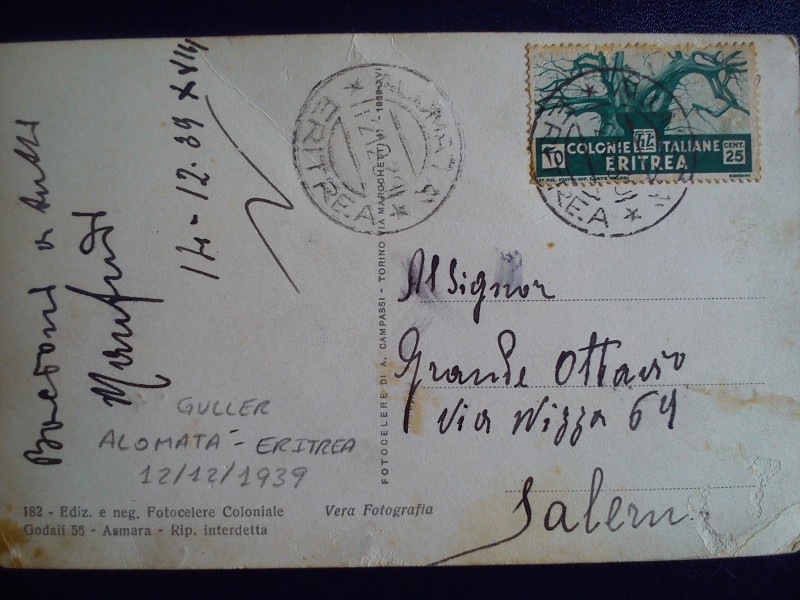 Bacetoni a tutti
Manfredi
14-12.39 XVIII
ERITREA
10 COLONIE ITALIANE CENT. 25
ERITREA
ERITREA
FOTOCELERE DI A. CAMPASSI - TORINO VIA MAROCHETTI 41 - 1939-XVI
Al Signor
Grande Ottavio
Via Nizza 64
Salerno
GULLER
ALOMATÀ - ERITREA
12/12/1939
182 - Ediz. e neg. Fotocelere Coloniale
Godaif 55 - Asmara - Rip. interdetta
Vera Fotografia